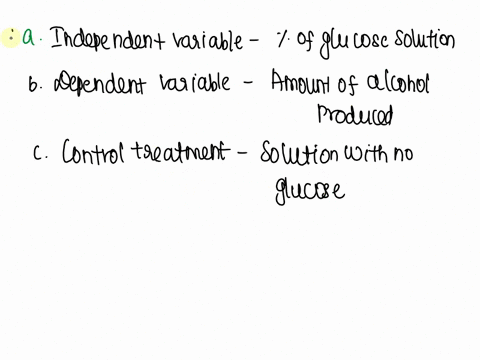 a. Independent variable - % of glucose solution
b. Dependent variable - Amount of alcohol
produced
c. Control treatment - Solution with no
glucose